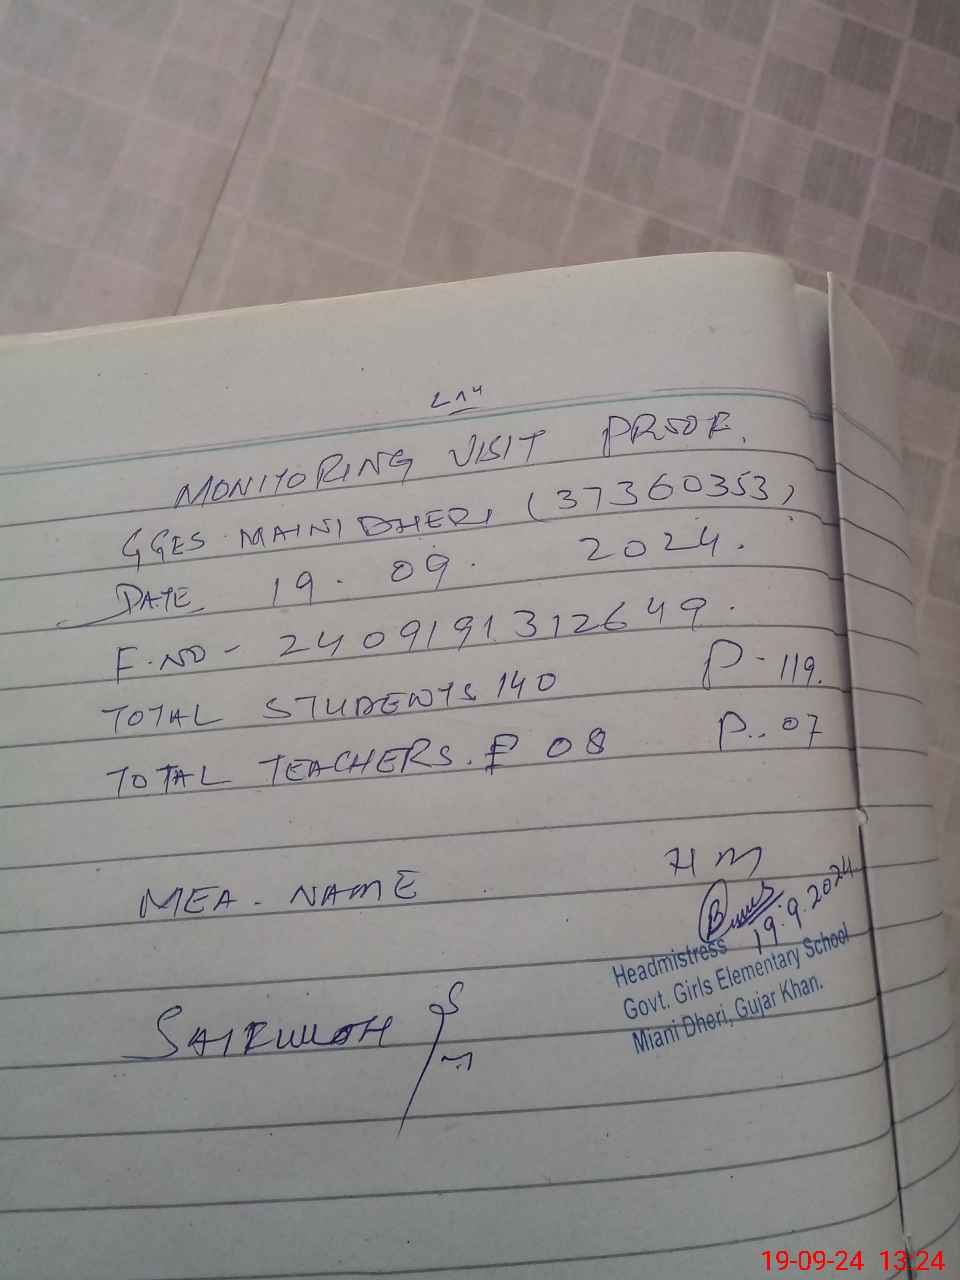 MONITORING VISIT PROOF.
GGES MAINI DHERI (37360353)
DATE 19. 09. 2024.
F.NO- 2409191312649.
TOTAL STUDENTS 140 P-119.
TOTAL TEACHERS. F 08 P.. 07
MEA. NAME
HM
19.9.2024
Headmistress
Govt. Girls Elementary School
Miani Dheri, Gujar Khan.
19-09-24 13:24